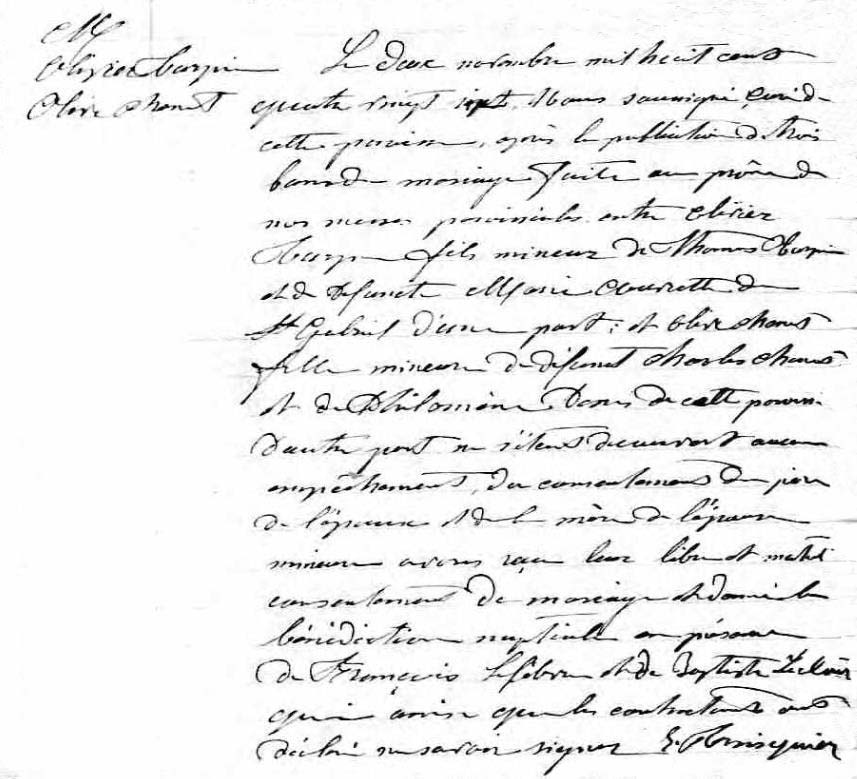 M
Olivier Turpin
Olive Chenet
Le deux novembre mil huit cent
quatre vingt sept, Nous soussigné Curé de
cette paroisse, après la publication de trois
bans de mariage faite au prône de
nos messes paroissiales entre Olivier
Turpin fils mineur de Thomas Turpin
et de Defuncte Marie Ouvrette de
St Gabriel d'une part; et Olive Chenet
fille mineure de défunt Charles Chenet
et de Philomène de cette paroisse
D'autre part ne s'étant découvert aucun
empêchement, du consentement du père
de l'époux et de la mère de l'épouse
mineure avons reçu leur libre et mutuel
consentement de mariage et donné la
bénédiction nuptiale en présence
de François Lefebvre et de Baptiste
qui ainsi que les contractants ont
déclaré ne savoir signer